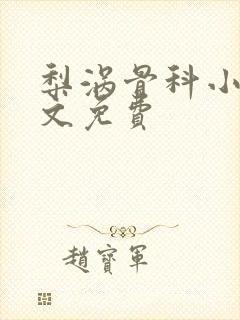 梨涡骨科小
文免費
趙寶軍